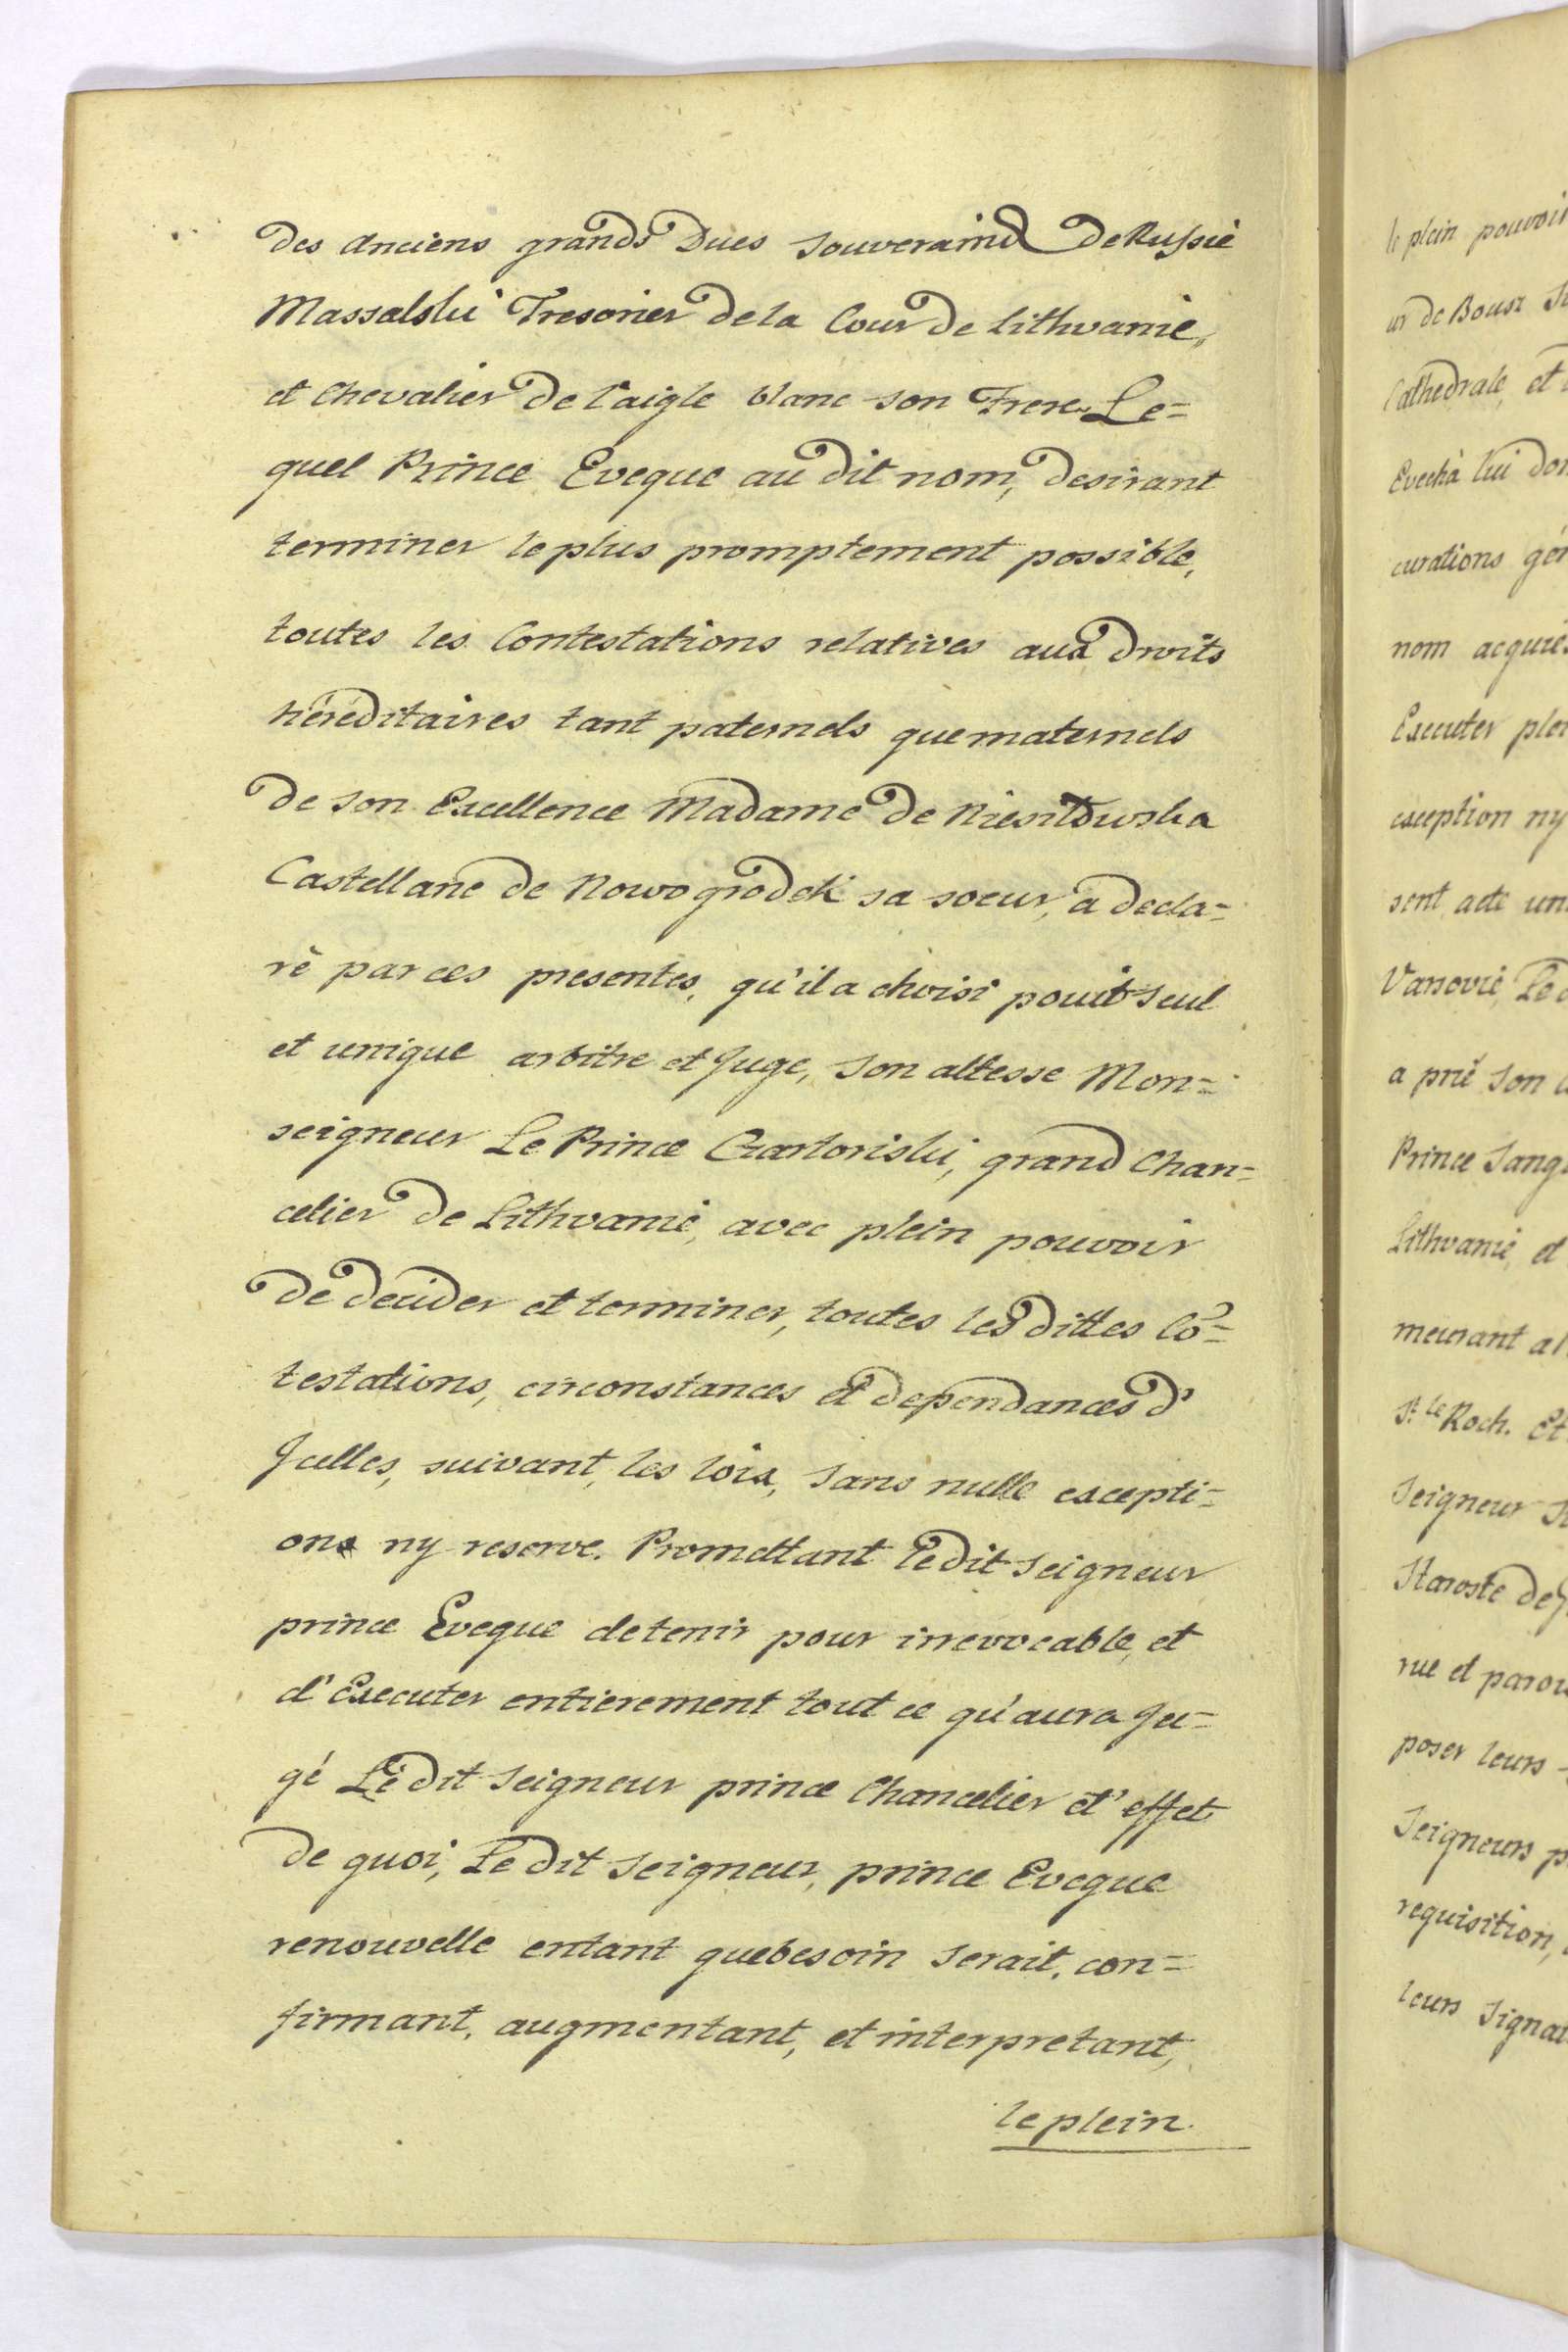 des Anciens grands Ducs Souverains de Russie
Massalski Tresorier de la Cour de Lithvanie,
et Chevalier de l'aigle blanc son Frere Le=
quel Prince Eveque au dit nom, desirant
terminer le plus promptement possible,
toutes les Contestations relatives aux droits
héréditaires tant paternels que maternels
de son Excellence Madame de Niesitowska
Castellane de Nowogrodek sa soeur, a decla=
rè par ces presentes, qu'il a choisi pour seul
et unique arbitre et Juge, Son altesse Mon=
seigneur Le Prince Czartoriski, grand Chan=
celier de Lithvanie, avec plein pouvoir
de decider et terminer, toutes les dittes Cõ=
testations, circonstances et dependances d'
Jcelles, suivant, les loix, Sans nulle excepti=
ons ny reserve. Promettant Ledit Seigneur
prince Eveque de tenir pour irrevocable, et
d'Executer entierement tout ce qu'aura Ju=
gé Ledit Seigneur prince Chancelier et' effet
de quoi, Le dit Seigneur, prince Eveque
renouvelle entant que besoin Serait, con=
firmant, augmentant, et interpretant,
le plein
le plein pouvoir
ur de Bousz
Cathedrale, et
Evechà lui
curations
nom
Executer
exception ny
sent acte
Vanovie, Le
a prié Son
Prince
Lithvanie, et
meurant
St. le Roch. Et
Seigneur
Staroste de
rue et
poser leurs
Seigneurs
requisition,
leurs